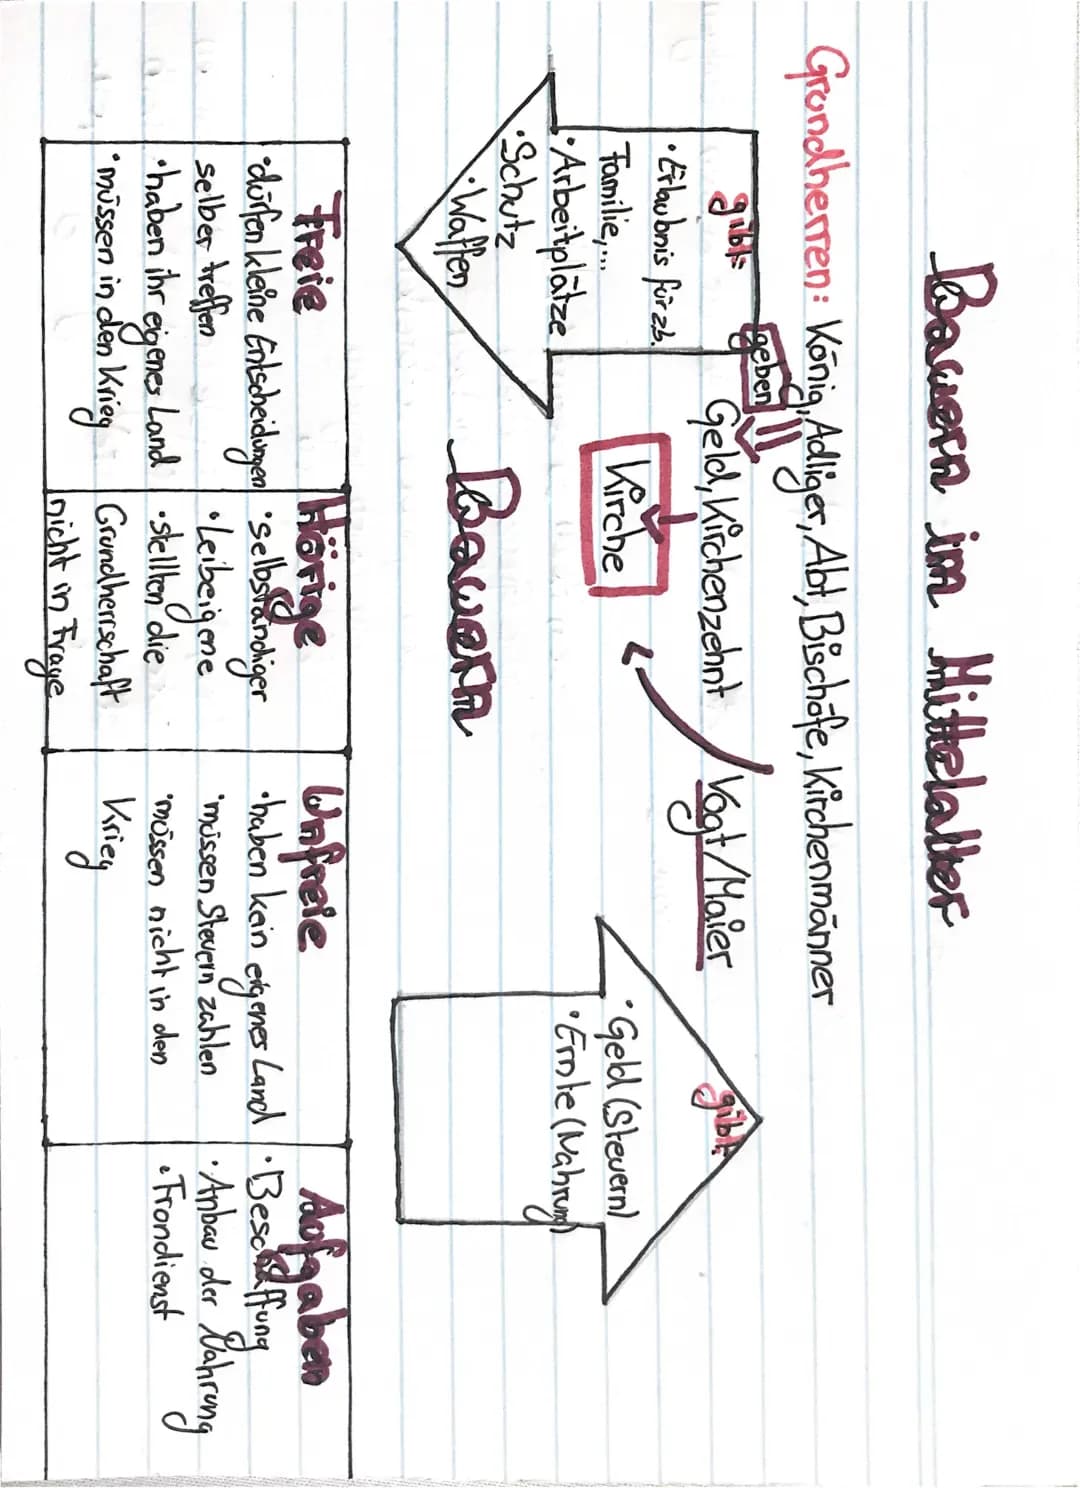 Bauern im Mittelalter
Grundherren: König, Adliger, Abt, Bischöfe, Kirchenmänner
geben
Geld, Kirchenzehnt
Kirche
Vogt/Maier
gibt:
• Erlaubnis für zb.
Familie,...
• Arbeitplätze
• Schutz
• Waffen
gibt:
• Geld (Steuern)
• Ernte (Nahrung)
Bauern
Freie
• dürfen kleine Entscheidungen
selber treffen
• haben ihr eigenes Land
• müssen in den Krieg
Hörige
• selbständiger
• Leibeigene
• stellten die
Grundherrschaft
nicht in Frage
Unfreie
• haben kein eigenes Land
• müssen Steuern zahlen
• müssen nicht in den
Krieg
Aufgaben
• Beschaffung
• Anbau der Nahrung
• Frondienst